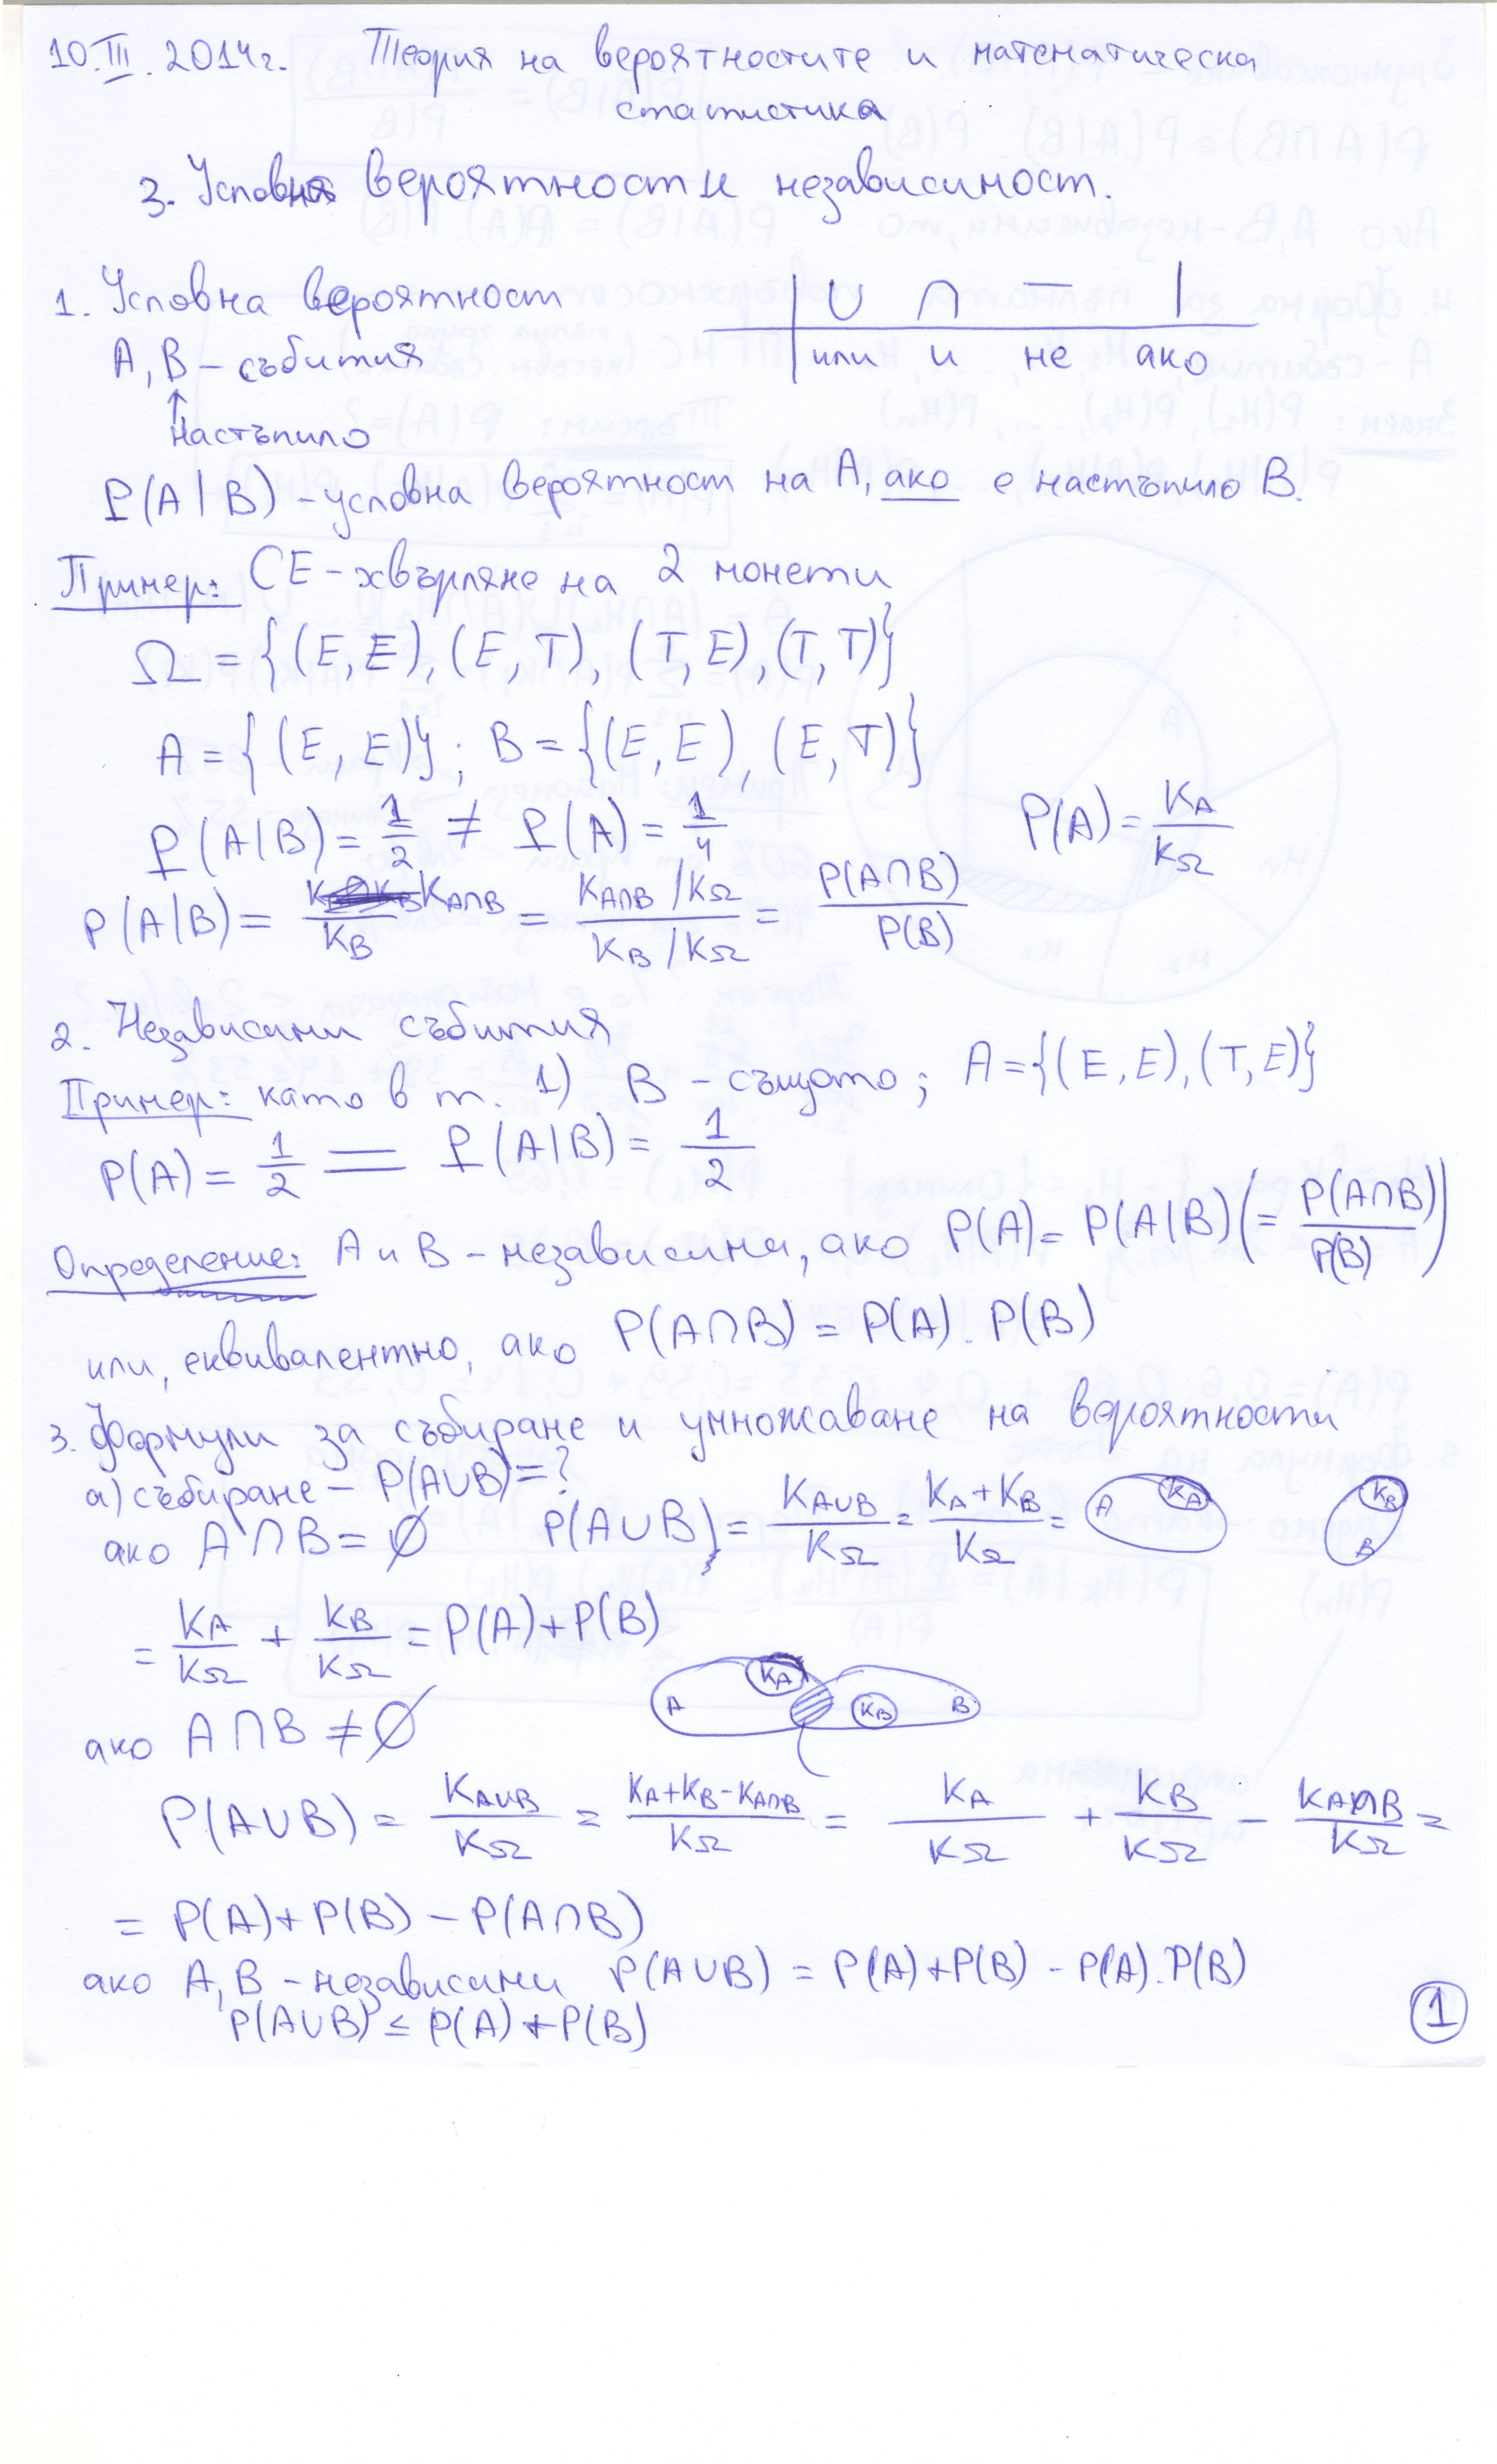 10.III.2014г. Теория на вероятностите и математическа
статистика
3. Условна вероятност и независимост.
1. Условна вероятност
| ∪ ∩ — |
| или и не ако
A, B – събития
↑
настъпило
P(A|B) – условна вероятност на A, ако е настъпило B.
Пример: СЕ – хвърляне на 2 монети
Ω = {(E, E), (E, T), (T, E), (T, T)}
A = {(E, E)}; B = {(E, E), (E, T)}
P(A|B) = 1/2 ≠ P(A) = 1/4 P(A) = K_A/K_Ω
P(A|B) = K_{A∩B}/K_B = (K_{A∩B}/K_Ω)/(K_B/K_Ω) = P(A∩B)/P(B)
2. Независими събития
Пример: като в т. 1) B – същото; A = {(E, E), (T, E)}
P(A) = 1/2 = P(A|B) = 1/2
Определение: A и B – независими, ако P(A) = P(A|B) (= P(A∩B)/P(B))
или, еквивалентно, ако P(A∩B) = P(A).P(B)
3. Формули за събиране и умножаване на вероятности
а) събиране – P(A∪B) = ?
ако A∩B = ∅ P(A∪B) = K_{A∪B}/K_Ω = (K_A+K_B)/K_Ω = A K_A K_B B
= K_A/K_Ω + K_B/K_Ω = P(A)+P(B)
A K_A K_B B
ако A∩B ≠ ∅
P(A∪B) = K_{A∪B}/K_Ω = (K_A+K_B-K_{A∩B})/K_Ω = K_A/K_Ω + K_B/K_Ω - K_{A∩B}/K_Ω =
= P(A)+P(B) – P(A∩B)
ако A, B – независими P(A∪B) = P(A)+P(B) - P(A).P(B)
P(A∪B) ≤ P(A)+P(B)
1